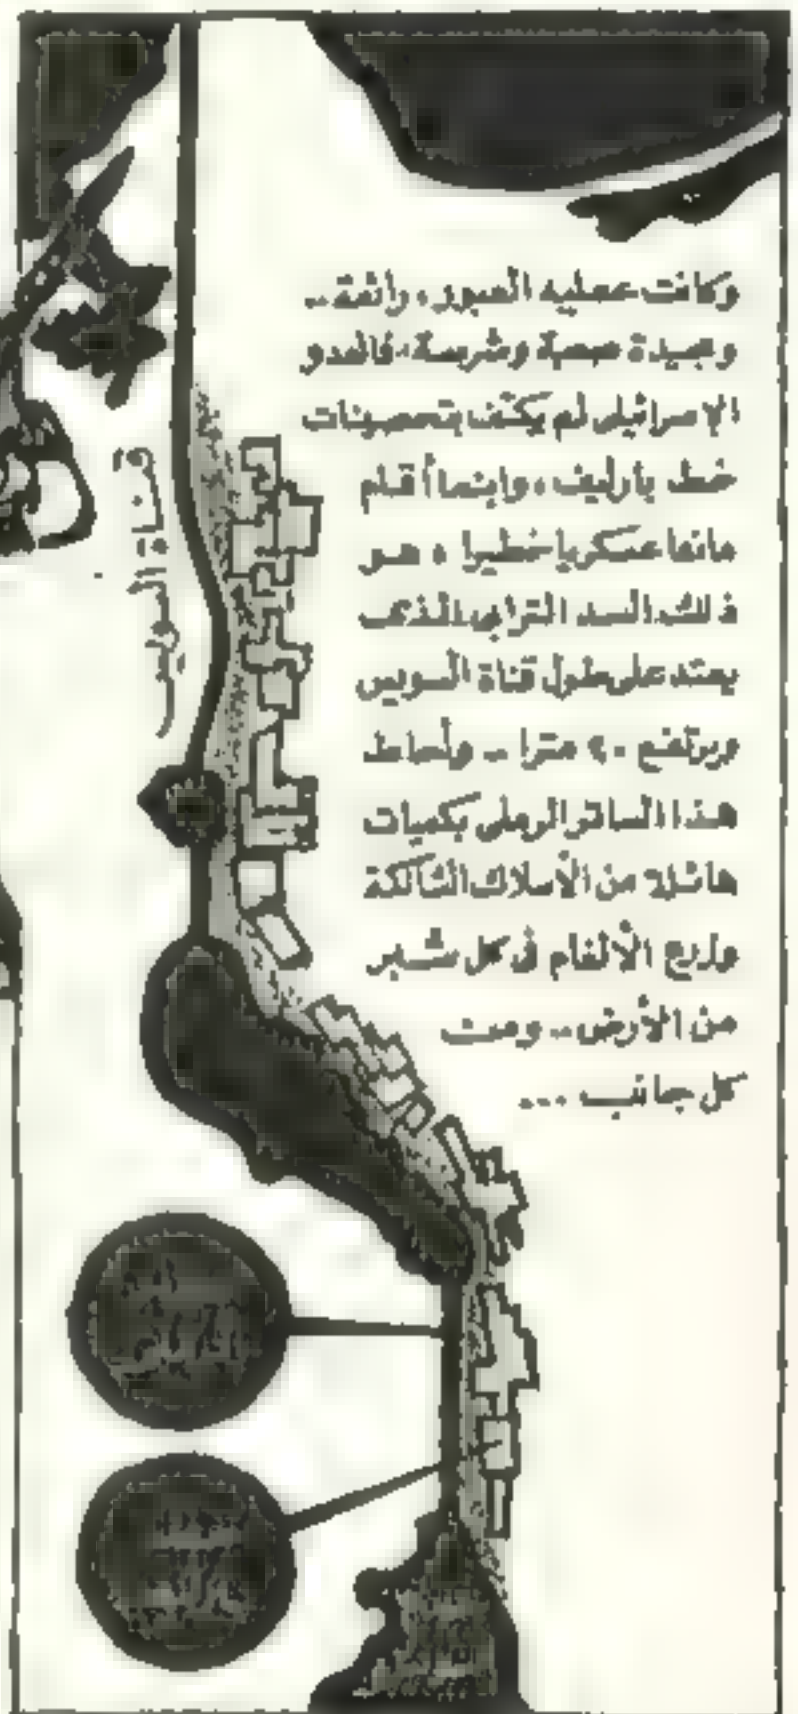 وكانت عمليه العبور، رائعة..
ومجيدة صعبة وشرسة، فالعدو
الإسرائيلى لم يكتف بتحصينات
خط بارليف، وإنما أقام
مانعا عسكريا خطيرا، هو
ذلك السد الترابى الذى
يمتد على طول قناة السويس
ويرتفع ٢٠ مترا .. وأحاط
هذا الساتر الرملى بكميات
هائلة من الأسلاك الشائكة
وزرع الألغام فى كل شبر
من الأرض .. ومن
كل جانب ...
قناة السويس